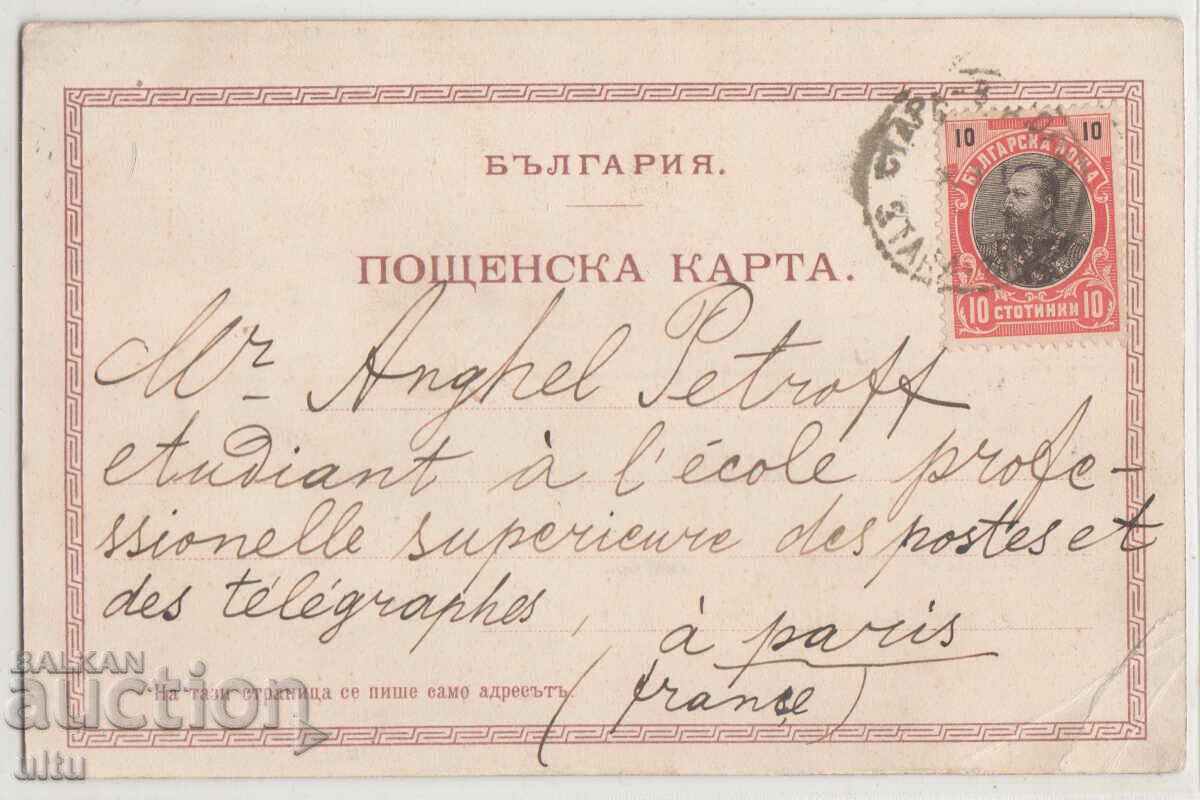 БЪЛГАРИЯ.
ПОЩЕНСКА КАРТА.
10 10
БЪЛГАРСКА ПОЩА
10 СТОТИНКИ 10
СТАРА
Mr Anghel Petroff
etudiant à l'école profe-
ssionelle superieure des postes et
des télégraphes,
à paris
(france)
На тази страница се пише само адресътъ.
BALKAN
auction
ultu